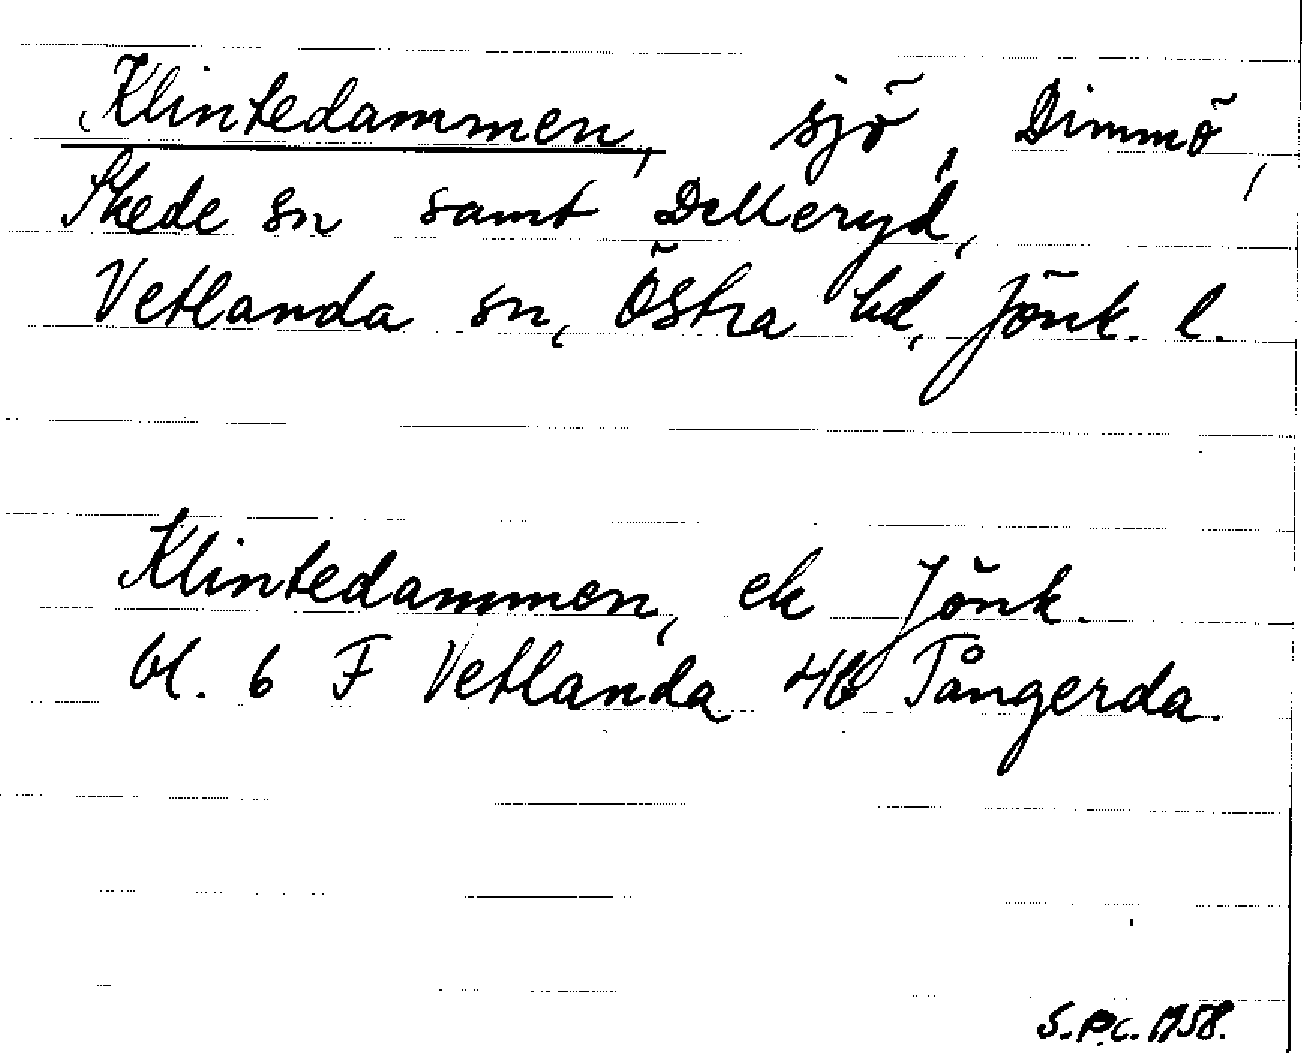 Klintedammen, sjö, Dimmö,
Skede sn samt Delleryd,
Vetlanda sn, Östra hd, Jönk. l.
Klintedammen, ek Jönk.
bl. 6 F Vetlanda 4b Tångerda.
S.P.C. 1958.